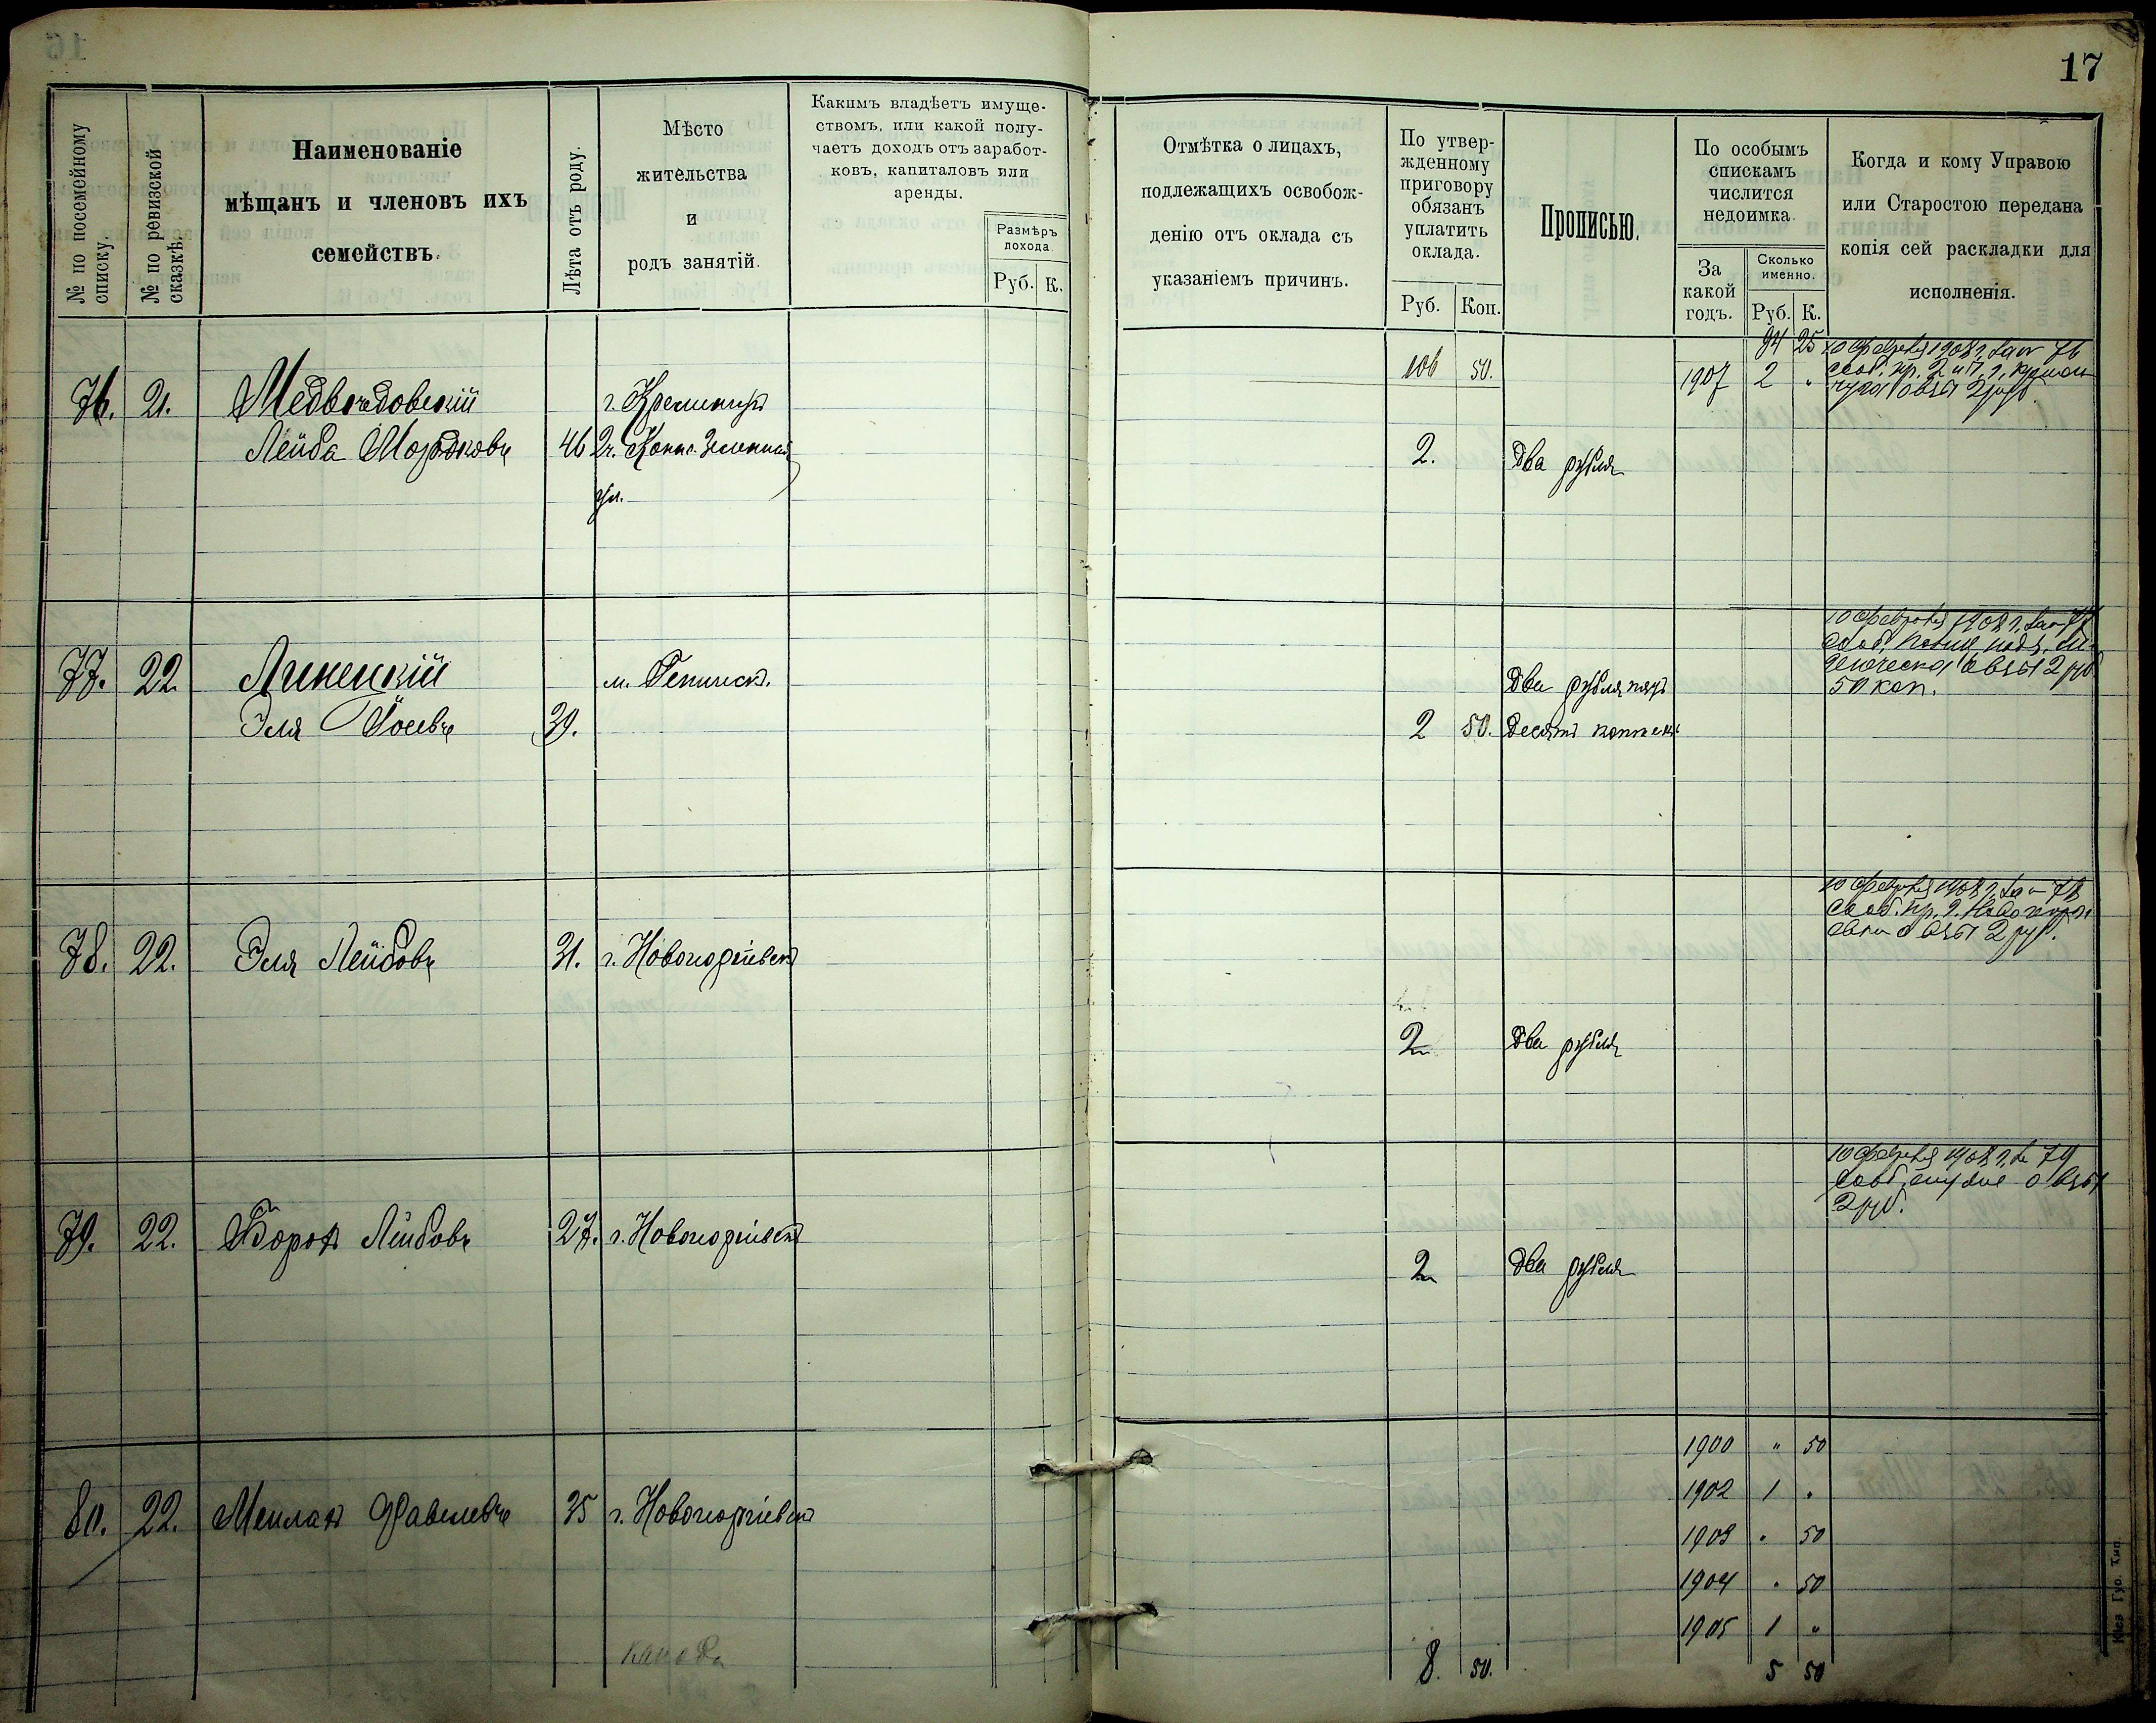 17
№ по посемейному списку.
№ по ревизской сказкѣ.
Наименованіе
мѣщанъ и членовъ ихъ
семействъ.
Лѣта отъ роду.
Мѣсто
жительства
и
родъ занятій.
Какимъ владѣетъ имуще-
ствомъ, или какой полу-
чаетъ доходъ отъ заработ-
ковъ, капиталовъ или
аренды.
Размѣръ
дохода.
Руб. К.
Отмѣтка о лицахъ,
подлежащихъ освобож-
денію отъ оклада съ
указаніемъ причинъ.
По утвер-
жденному
приговору
обязанъ
уплатить
оклада.
Руб. Коп.
Прописью.
По особымъ
спискамъ
числится
недоимка.
За
какой
годъ.
Сколько
именно.
Руб. К.
Когда и кому Управою
или Старостою передана
копія сей раскладки для
исполненія.
94 25
106 50.
76. 21. Медвѣдовскій
Лейба Мордковъ 46
ул.
2. Два рубля
1907 2 "
10 февраля 1908 г. за № 76
2 руб.
77. 22. Линецкій
Эля 39.
Два рубля пять
2 50. десятъ копѣекъ
10 февраля 1908 г. за № 77
о взы 2 руб
50 коп.
78. 22. Эля Лейбовъ 31. г. Новогеоргіевскъ
2 Два рубля
10 февраля 1908 г. за № 78
о взы 2 руб.
79. 22. Борохъ Лейбовъ 27. г. Новогеоргіевскъ
2 Два рубля
10 февраля 1908 г. № 79
о взы
2 руб.
80. 22. Меилахъ 35 г. Новогеоргіевскъ
1900 " 50
1902 1 "
1903 " 50
1904 " 50
1905 1 "
8. 50.
5 50
Кіев. Губ. Тип.